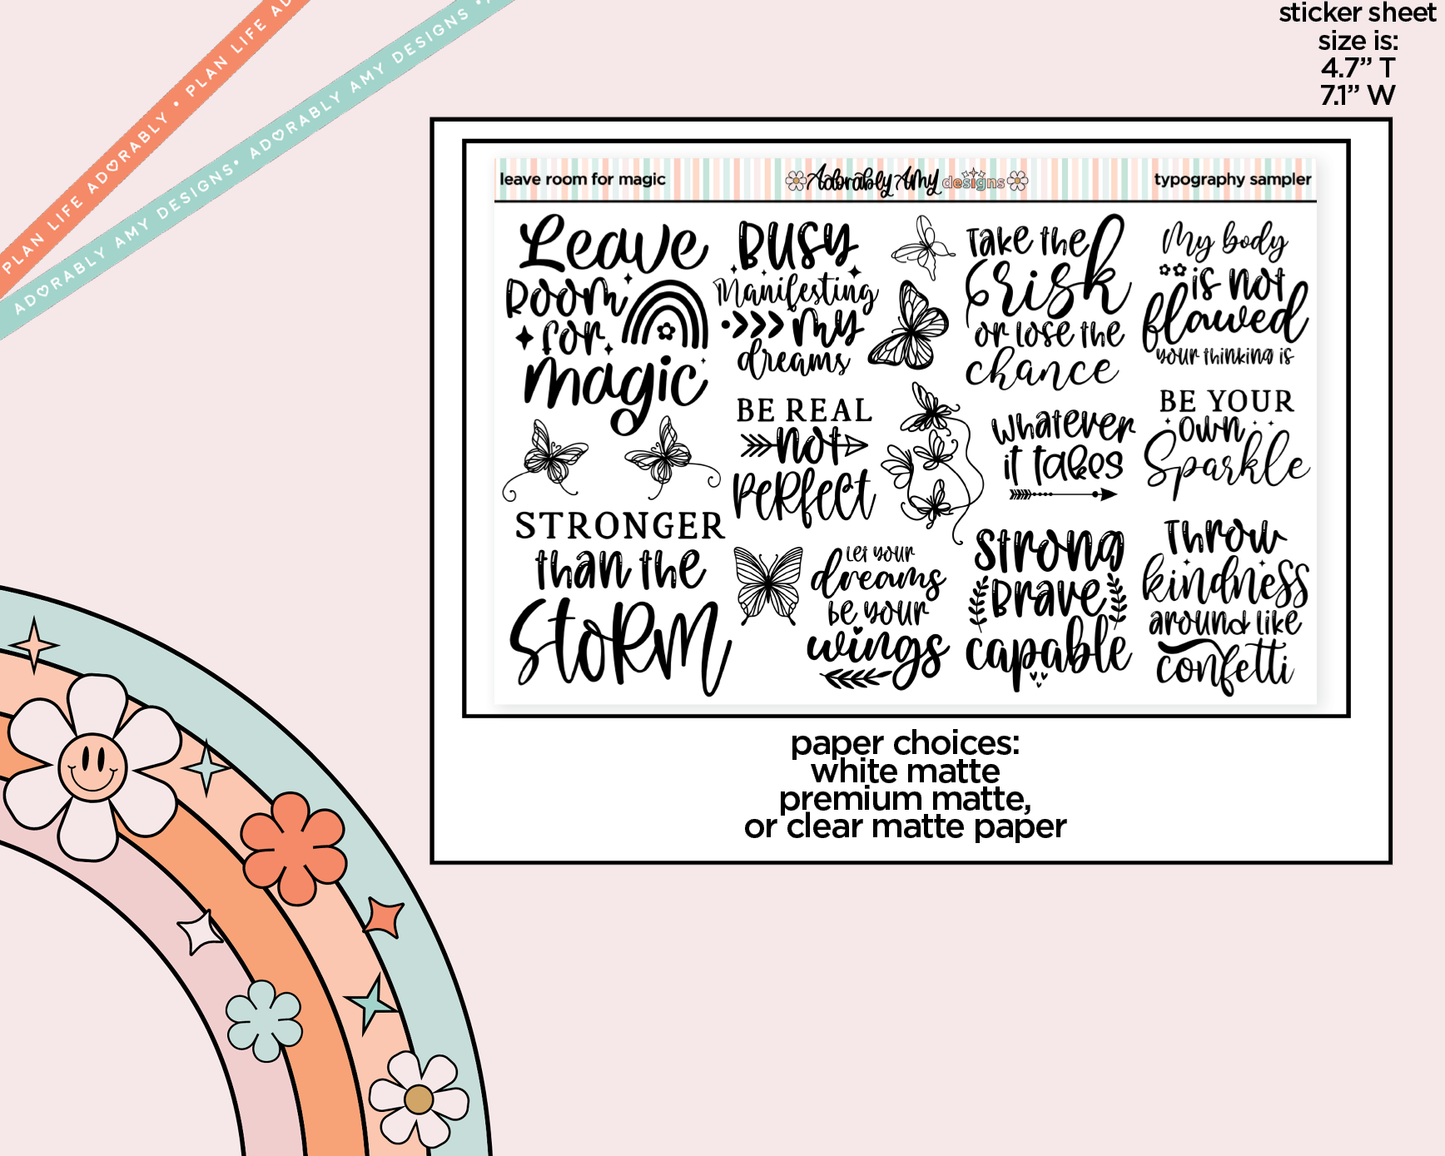 sticker sheet
size is:
4.7” T
7.1” W
PLAN LIFE ADORABLY • PLAN LIFE AD
ADORABLY AMY DESIGNS• ADORABLY AMY DESIGNS •
leave room for magic
Adorably Amy designs
typography sampler
Leave
Room
for
magic
Busy
Manifesting
my
dreams
Take the
risk
or lose the
chance
My body
is not
flawed
your thinking is
BE REAL
not
PERfect
Whatever
it takes
BE YOUR
own
Sparkle
STRONGER
than the
StoRM
Let your
dreams
be your
wings
Strong
Brave
capable
Throw
kindness
around like
confetti
paper choices:
white matte
premium matte,
or clear matte paper